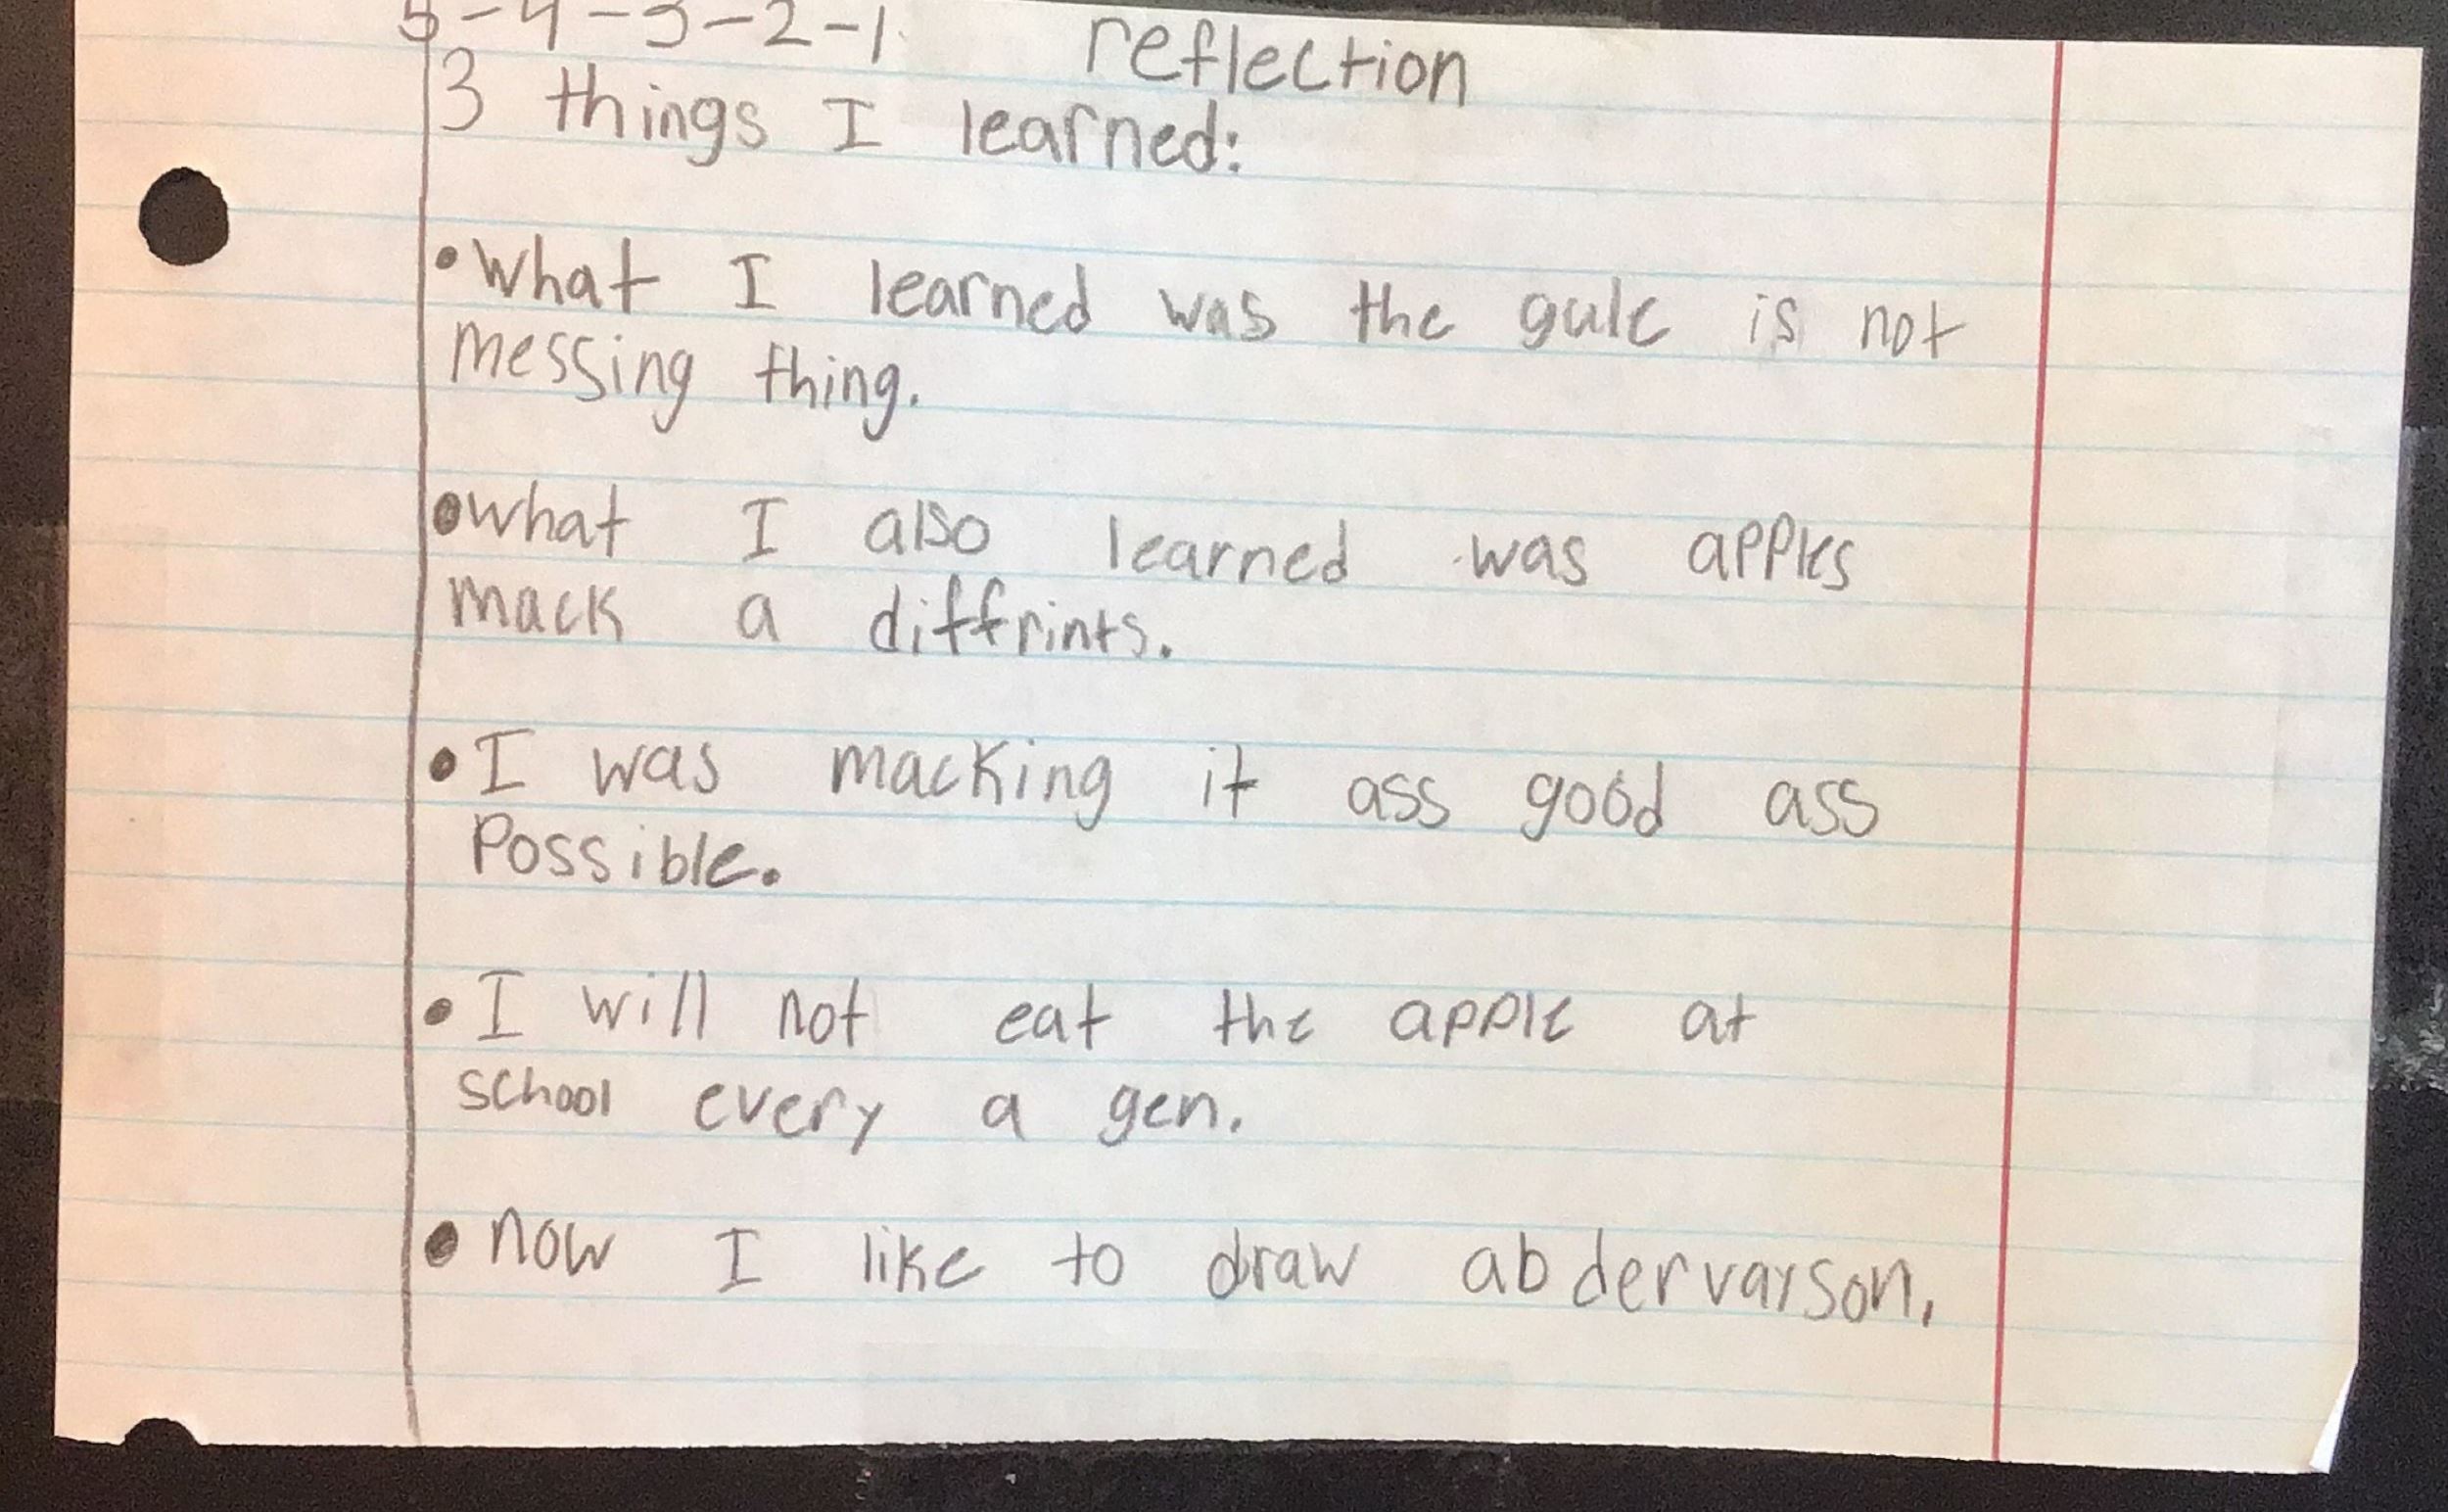 5-4-3-2-1 reflection
3 things I learned:
• What I learned was the gule is not
messing thing.
• what I also learned was apples
mack a diffrints.
• I was macking it ass good ass
Possible.
• I will not eat the apple at
school every a gen.
• now I like to draw abdervarson.